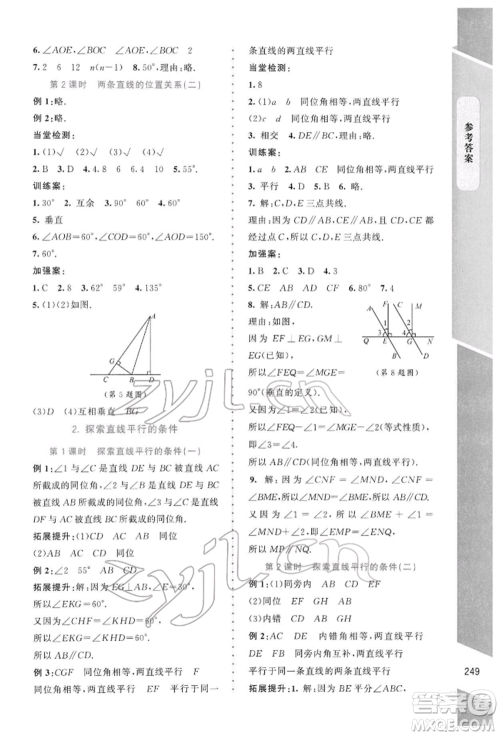 6. ∠AOE, ∠BOC ∠AOE, ∠BOC
7. 2 6 12 n(n-1) 8. 50°, 理由:略.
第2课时 两条直线的位置关系(二)
例1:略.
例2:略.
当堂检测:
1. (1)√ (2)√ (3)√
2. B 3. D 4. 4.8 6 4 10 5. 55°.
训练案:
1. 30° 2. 互余 3. 40° 4. 略.
5. 垂直
6. ∠AOB=60°, ∠COD=60°. 7. 略.
加强案:
1. C 2. 62° 59° 4. 135°.
5. (1)(2)如图.
A
G
C
B
D
(第5题图)
(3)D (4)互相垂直 BG
2. 探索直线平行的条件
第1课时 探索直线平行的条件(一)
例1:∠1与∠C是直线DE与BC被直线AC
所截成的同位角.
∠2与∠B是直线DE与BC被直线AB
所截成的同位角.
∠3与∠C是直线DF与AC被直线BC
所截成的同位角.
拓展提升:(1)AB CE BD 同位角
(2)AB CD AC 同位角
例2:∠2 ∠5
拓展提升:解:因为EG⊥AB, ∠E=30°,
所以∠EKG=60°.
又因为∠CHF=∠EKG=60°,
所以∠CHF=∠EKG.
所以AB∥CD.
例3:∠EFD ∠EGB 同位角相等,两直线
平行 ∠EKD 平行于同一条直线的两
条直线的两直线平行
当堂检测:
1. 8
2. (1)a b 同位角相等,两直线平行
(2)c d 同位角相等,两直线平行
3. 相交 4. DE∥BC 5. 略.
训练案:
1. a∥b 同位角相等,两直线平行 2. 略.
3. 平行 4. D 5. D 6. D
7. 解:C, D, E三点共线.
理由:因为CD∥AB, DE∥AB, CD, DE都
经过点C,所以C, D, E三点共线.
加强案:
1. B 2. C 3. D 4. 3
5. CE AB AD CF 6. 80° 7. 4
8. 解:AB∥CD.
理由如下:
因为EF⊥EG, GM⊥
EG(已知),
所以∠FEQ=∠MGE=
90°(垂直的意义).
又因为∠1=∠2(已知),
所以∠FEQ-∠1=∠MGE-∠2.
所以∠3=∠4.
所以AB∥CD.
(第8题图)
9. 解:因为∠1=∠2,∠1=∠CNF,
所以∠2=∠CNF.
又因为∠CNF=∠BME,
所以∠2=∠BME,
所以∠BME=∠DNF,
所以AB∥CD,∠EMP=∠ENQ,
所以MP∥NQ.
第2课时 探索直线平行的条件(二)
例1:(1)同旁内 AB CD EF
(2)同位 EF GH AB
(3)内错 AB CD EF GH
例2:AC DE 内错角相等,两直线平行
AB DE 同旁内角互补,两直线平行
平行于同一条直线的两条直线平行
拓展提升:解:因为BE平分∠ABC,
参考答案
249